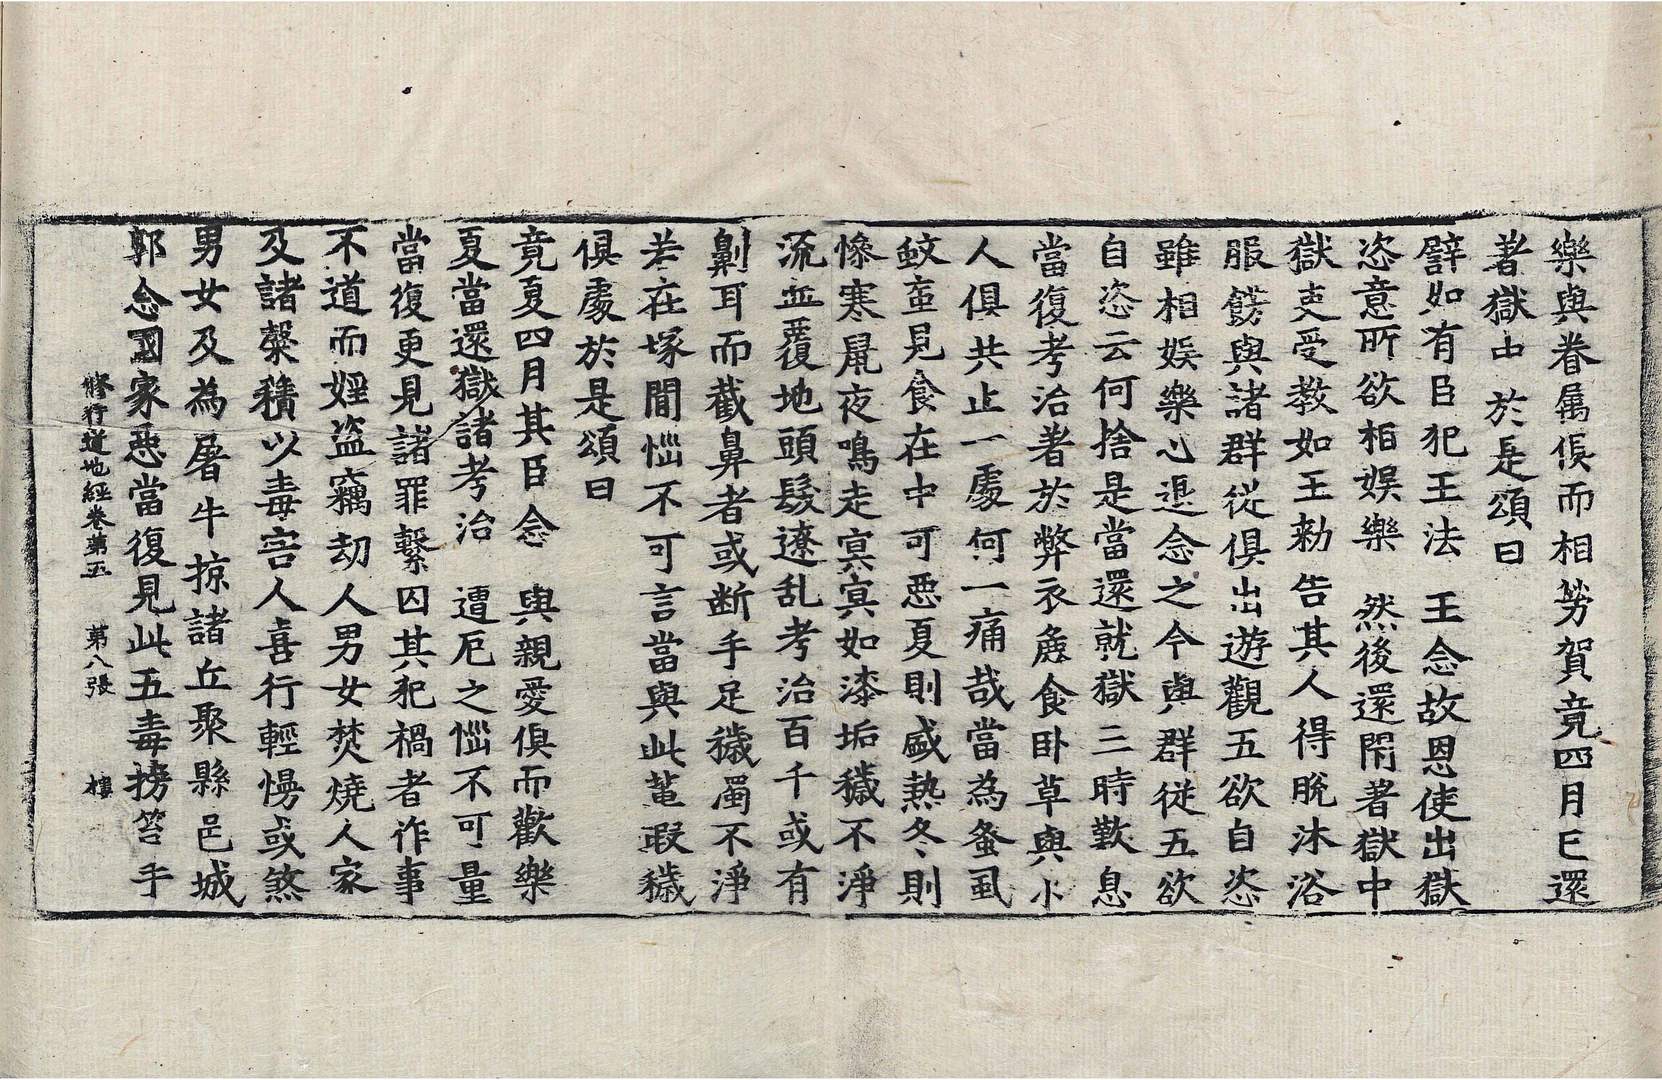 樂與眷属俱而相勞賀竟四月已還
著獄中 於是頌曰
譬如有臣犯王法 王念故恩使出獄
恣意所欲相娛樂 然後還閇著獄中
獄吏受教如王勅告其人得脫沐浴
服餝與諸群從俱出遊觀五欲自恣
雖相娛樂心退念之今與群從五欲
自恣云何捨是當還就獄三時歎息
當復考治著於弊衣麁食卧草與小
人俱共止一處何一痛哉當為蚤虱
蚊䖟見食在中可惡夏則盛熱冬則
慘寒鼠夜鳴走㝠㝠如漆垢穢不淨
流血覆地頭髮遼乱考治百千或有
劓耳而截鼻者或断手足穢濁不淨
若在塚間惱不可言當與此輩瑕穢
俱處於是頌曰
竟夏四月其臣念 與親愛俱而歡樂
夏當還獄諸考治 遭厄之惱不可量
當復更見諸罪繫囚其犯禍者作事
不道而婬盜竊劫人男女焚燒人家
及諸穀積以毒害人喜行輕慢或煞
男女及為屠牛掠諸丘聚縣邑城
郭念國家惡當復見此五毒搒笞手
脩行道地經卷第五 第八張 樓